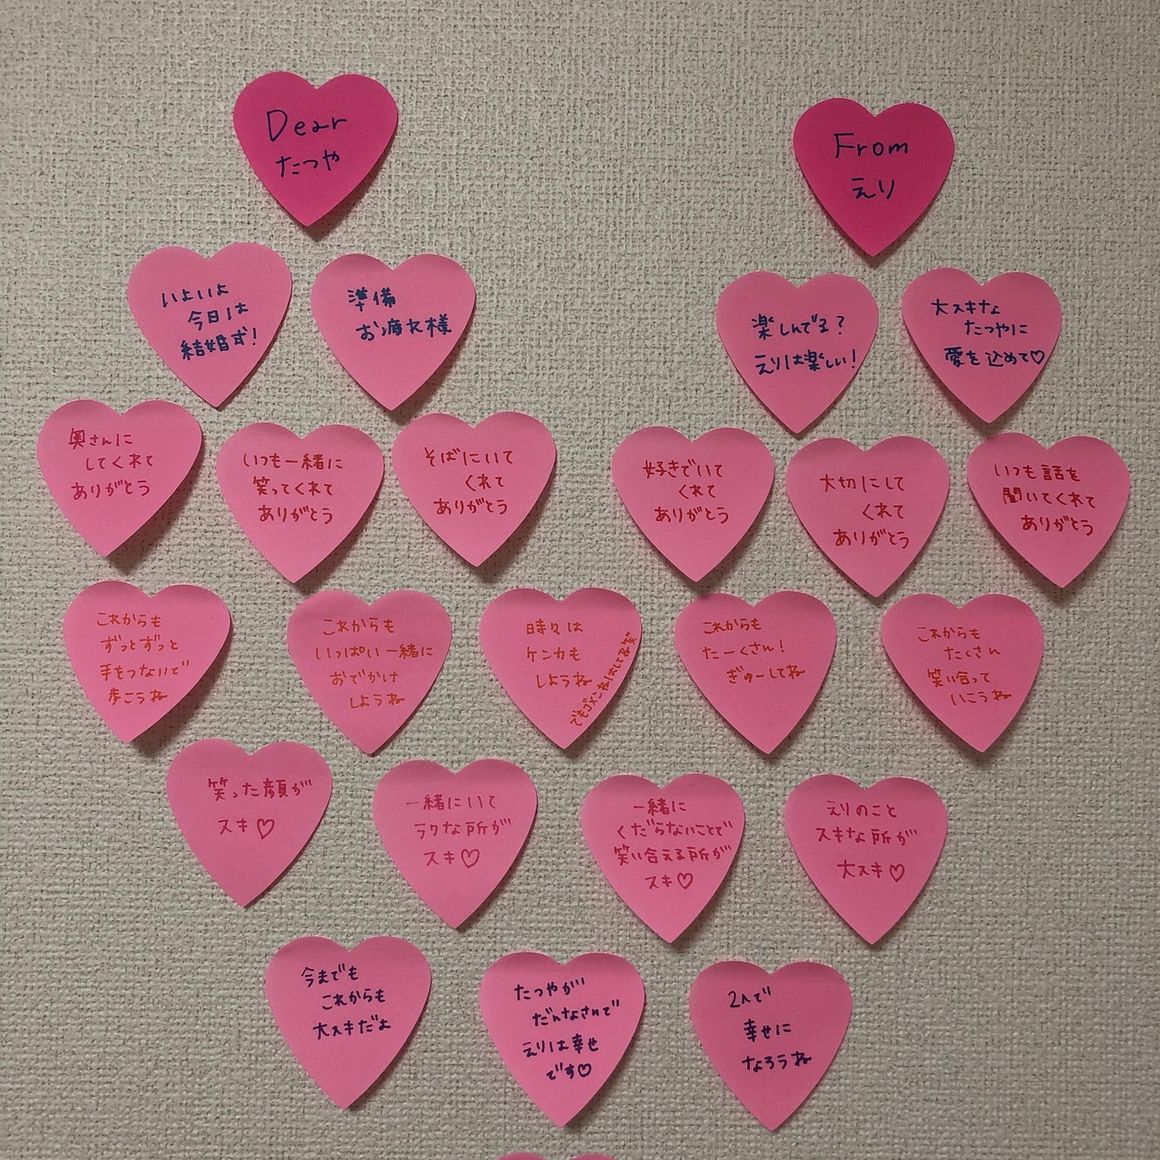 Dear
たつや
From
えり
いよいよ
今日は
結婚式!
準備
お疲れ様
楽しんでる?
えりは楽しい!
大スキな
たつやに
愛を込めて♡
奥さんに
してくれて
ありがとう
いつも一緒に
笑ってくれて
ありがとう
そばにいて
くれて
ありがとう
好きでいて
くれて
ありがとう
大切にして
くれて
ありがとう
いつも話を
聞いてくれて
ありがとう
これからも
ずっとずっと
手をつないで
歩こうね
これからも
いっぱい一緒に
おでかけ
しようね
時々は
ケンカも
しようね
でもゴメンねはしてね笑
これからも
たーくさん!
ぎゅーしてね
これからも
たくさん
笑い合って
いこうね
笑った顔が
スキ♡
一緒にいて
ラクな所が
スキ♡
一緒に
くだらないことで
笑い合える所が
スキ♡
えりのこと
スキな所が
大スキ♡
今までも
これからも
大スキだよ
たつやが
だんなさいで
えりは幸せ
です♡
2人で
幸せに
なろうね